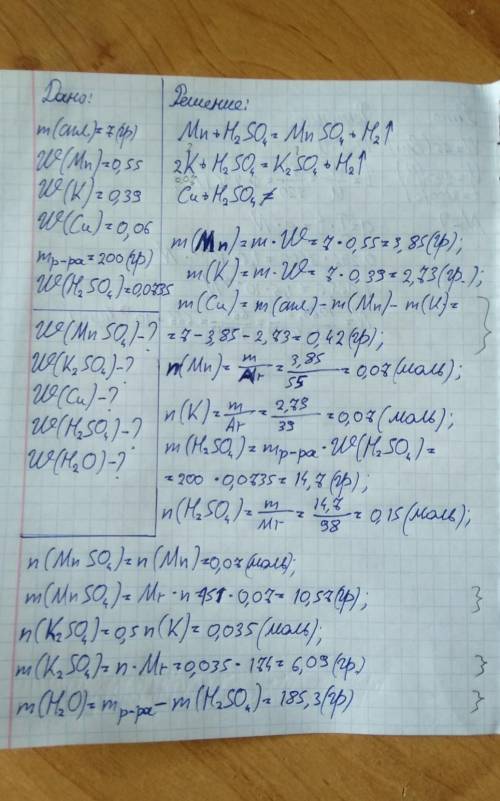 Дано:
m(спл)=7(гр)
W(Mn)=0,55
W(K)=0,39
W(Cu)=0,06
mр-ра=200(гр)
W(H₂SO₄)=0,0735
W(MnSO₄)-?
W(K₂SO₄)-?
W(Cu)-?
W(H₂SO₄)-?
W(H₂O)-?
Решение:
Mn+H₂SO₄=MnSO₄+H₂↑
2K+H₂SO₄=K₂SO₄+H₂↑
Cu+H₂SO₄≠
m(Mn)=m·W=7·0,55=3,85(гр);
m(K)=m·W=7·0,39=2,73(гр.);
m(Cu)=m(спл)-m(Mn)-m(K)=
=7-3,85-2,73=0,42(гр);
n(Mn)=m/Ar=3,85/55=0,07(моль);
n(K)=m/Ar=2,73/39=0,07(моль);
m(H₂SO₄)=mр-ра·W(H₂SO₄)=
=200·0,0735=14,7(гр);
n(H₂SO₄)=m/Mr=14,7/98=0,15(моль);
n(MnSO₄)=n(Mn)=0,07(моль);
m(MnSO₄)=Mr·n=151·0,07=10,57(гр);
n(K₂SO₄)=0,5n(K)=0,035(моль);
m(K₂SO₄)=n·Mr=0,035·174=6,09(гр)
m(H₂O)=mр-ра-m(H₂SO₄)=185,3(гр)